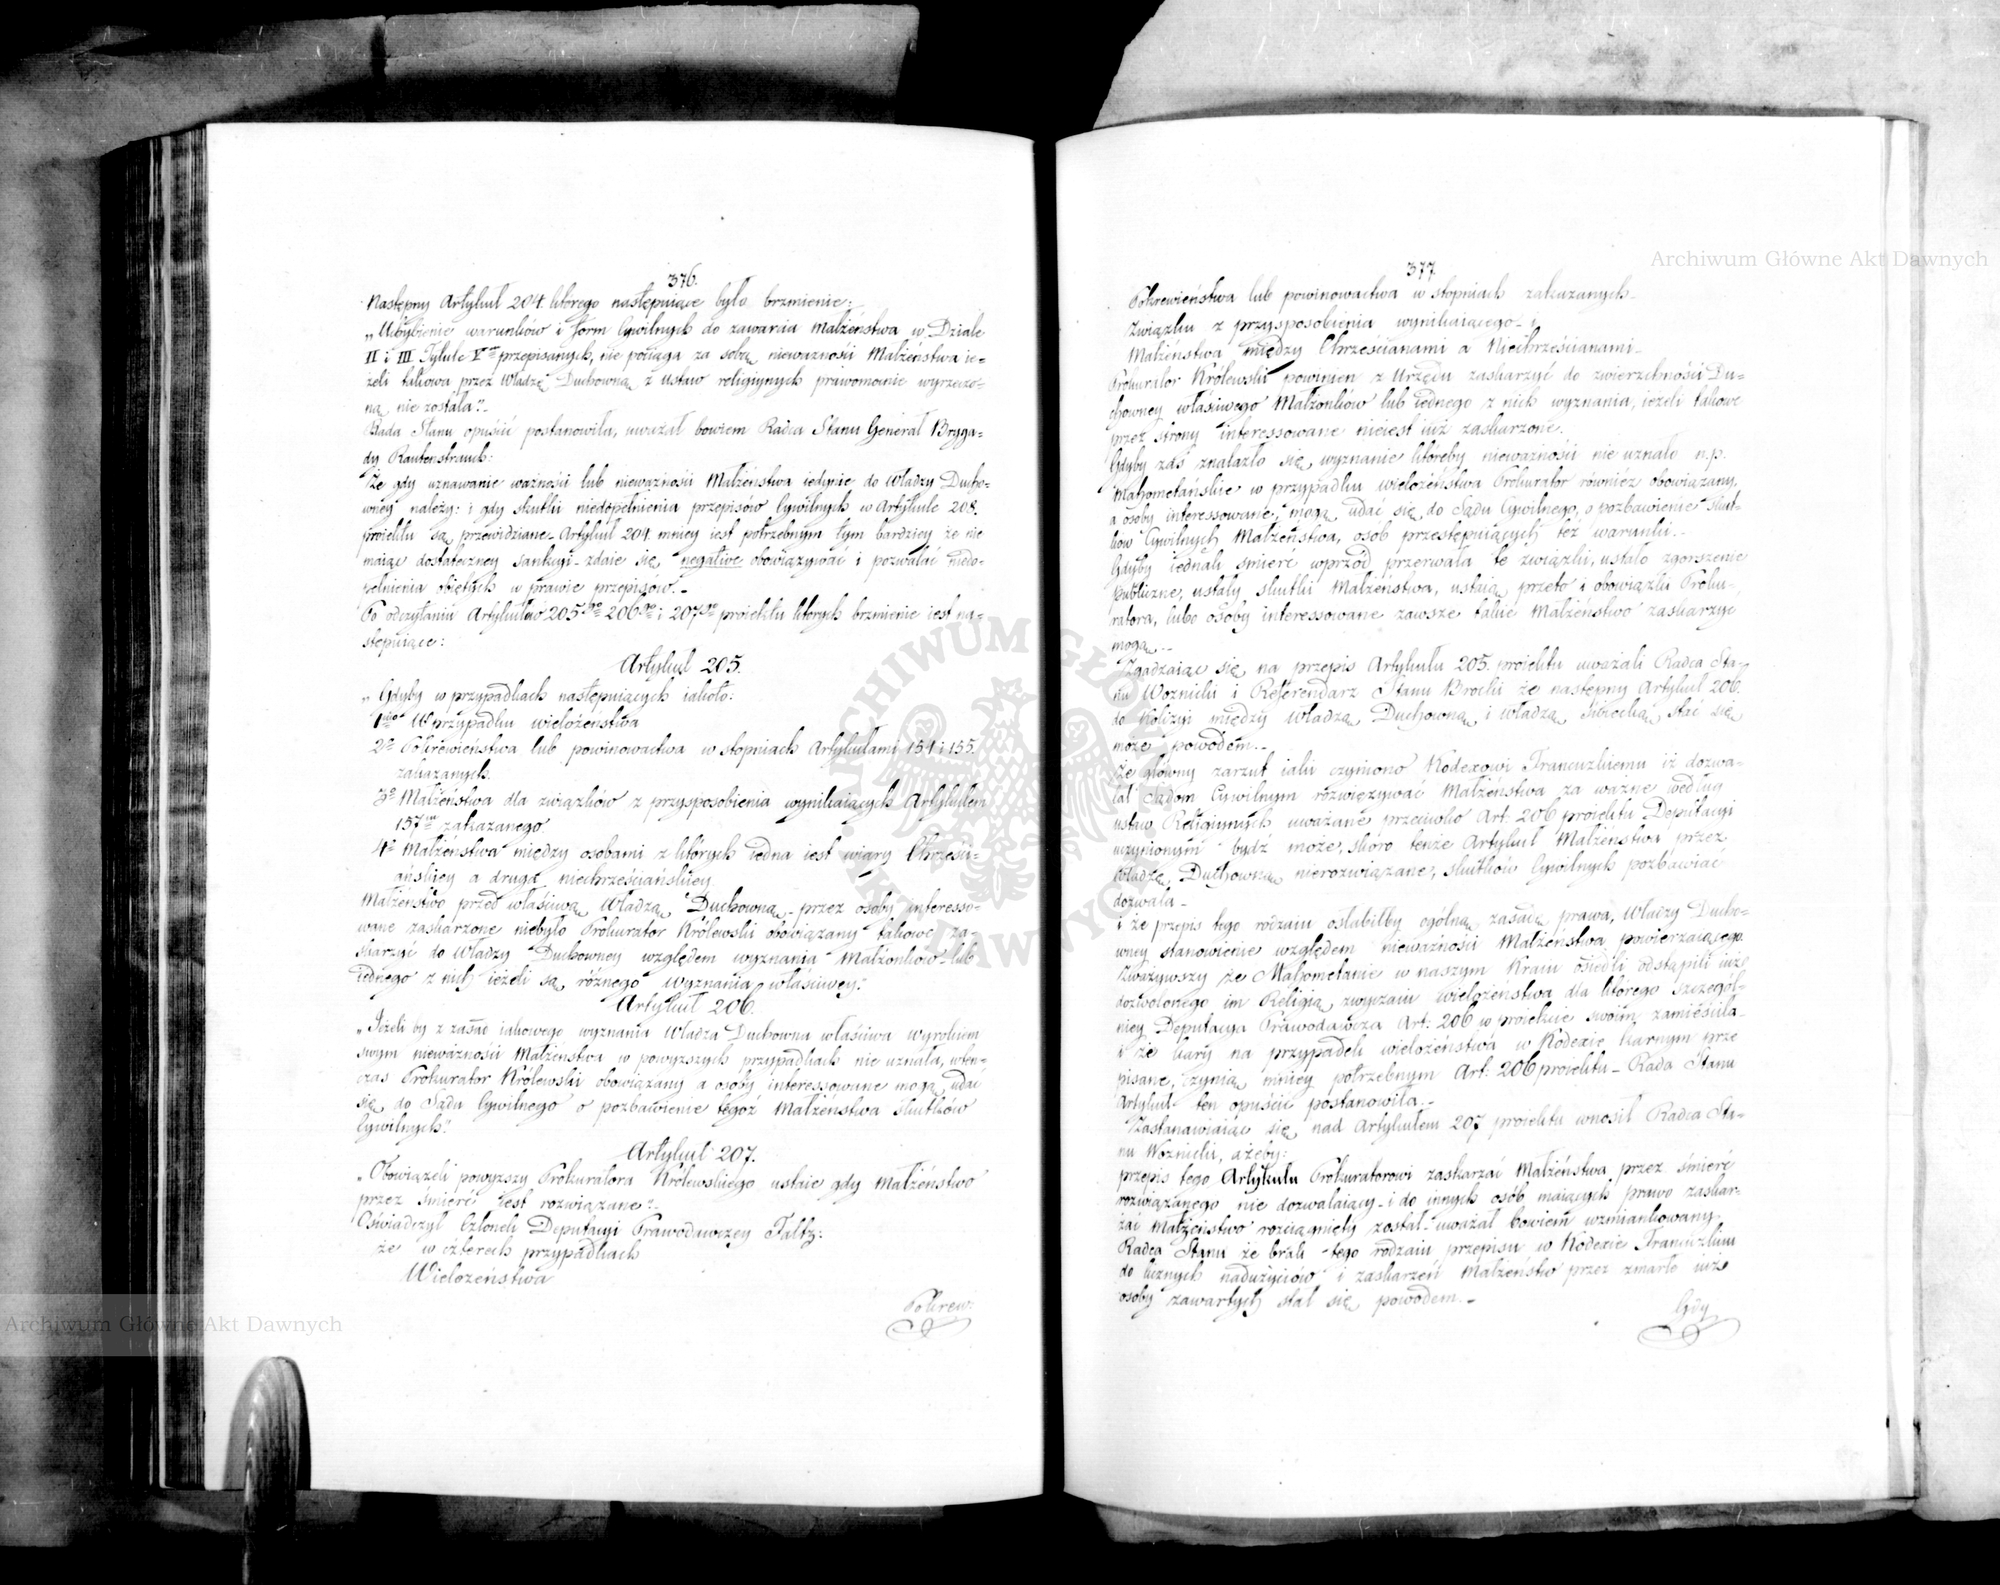 376.
Następny Artykuł 204. którego następuiące było brzmienie:
„Uchybienie warunków i form Cywilnych do zawarcia Małżeństwa w Dziale
II i III Tytułu V<sup>go</sup> przepisanych, nie pociąga za sobą nieważności Małżeństwa ie=
żeli takowa przez Władzę Duchowną z ustaw religiynych prawomocnie wyrzeczo=
ną nie została".
Rada Stanu opuścić postanowiła, uważał bowiem Radca Stanu Generał Bryga=
dy Rautenstrauch:
Że gdy uznawanie ważności lub nieważności Małżeństwa iedynie do Władzy Ducho=
wney należy: i gdy skutki niedopełnienia przepisów Cywilnych w Artykule 208.
proiektu są przewidziane Artykuł 204. mniey iest potrzebnym tym bardziey że nie
maiąc dostateczney sankcyi zdaie się negative obowiązywać i pozwalać niedo=
pełnienia obiętych w prawie przepisów.
Po odczytaniu Artykułów 205<sup>go</sup> 206<sup>go</sup> i 207<sup>go</sup> proiektu których brzmienie iest na=
stępuiące:
Artykuł 205.
„Gdyby w przypadkach następuiących iakoto:
1<sup>mo</sup> W przypadku wielożeństwa
2<sup>o</sup> Pokrewieństwa lub powinowactwa w stopniach Artykułami 154 i 155.
zakazanych.
3<sup>o</sup> Małżeństwa dla związków z przysposobienia wynikaiących Artykułem
157<sup>m</sup> zakazanego.
4<sup>o</sup> Małżeństwa między osobami z których iedna iest wiary Chrześci=
ańskiey a druga niechrześciańskiey
Małżeństwo przed właściwą Władzą Duchowną przez osoby interesso=
wane zaskarżone niebyło Prokurator Królewski obowiązany takowe za=
skarżyć do Władzy Duchowney względem wyznania Małżonków lub
iednego z nich ieżeli są różnego wyznania właściwey."
Artykuł 206.
„Jeżeli by z zasad iakowego wyznania Władza Duchowna właściwa wyrokiem
swym nieważności Małżeństwa w powyższych przypadkach nie uznała, wten=
czas Prokurator Królewski obowiązany a osoby interessowane mogą udać
się do Sądu Cywilnego o pozbawienie tegoż Małżeństwa skutków
Cywilnych".
Artykuł 207.
„Obowiązek powyższy Prokuratora Królewskiego ustaie gdy Małżeństwo
przez śmierć iest rozwiązane".
Oświadczył Członek Deputacyi Prawodawczey Faltz:
że w czterech przypadkach
Wielożeństwa
Pokrew:
377.
Pokrewieństwa lub powinowactwa w stopniach zakazanych
Związku z przysposobienia wynikaiącego i
Małżeństwa między Chrześcianami a Niechrześcianami
Prokurator Królewski powinien z Urzędu zaskarżyć do zwierzchności Du=
chowney właściwego Małżonków lub iednego z nich wyznania, ieżeli takowe
przez strony interessowane nieiest iuż zaskarżone.
Gdyby zaś znalazło się wyznanie któreby nieważności nie uznało n.p.
Mahometańskie w przypadku wielożeństwa Prokurator również obowiązany,
a osoby interessowane, mogą udać się do Sądu Cywilnego, o pozbawienie skut=
ków Cywilnych Małżeństwa, osób przestępuiących też warunki.
Gdyby iednak śmierć wprzód przerwała te związki, ustało zgorszenie
publiczne, ustały skutki Małżeństwa, ustaią przeto i obowiązki Proku=
ratora, lubo osoby interessowane zawsze takie Małżeństwo zaskarżyć
mogą.
Zgadzaiąc się na przepis Artykułu 205. proiektu uważali Radca Sta=
nu Woźnicki i Referendarz Stanu Brocki że następny Artykuł 206.
do Kolizyi między Władzą Duchowną i władzą świecką stać się
może powodem.
że główny zarzut iaki czyniono Kodexowi Francuzkiemu iż dozwa=
lał Sądom Cywilnym rozwięzywać Małżeństwa za ważne według
ustaw Religiynych uważane przeciwko Art. 206 proiektu Deputacyi
uczynionym bydź może, skoro tenże Artykuł Małżeństwa przez
Władzę Duchowną nierozwiązane, skutków Cywilnych pozbawiać
dozwala
i że przepis tego rodzaiu osłabiłby ogólną zasadę prawa, Władzy Ducho=
wney stanowienie względem nieważności Małżeństwa powierzaiącego.
Zważywszy że Mahometanie w naszym Kraiu osiedli odstąpili iuż
dozwolonego im Religią zwyczaiu wielożeństwa dla którego szczegól=
niey Deputacya Prawodawcza Art: 206 w proiekcie swoim zamieściła
i że kary na przypadek wielożeństwa w Kodexie karnym prze
pisane, czynią mniey potrzebnym Art: 206 proiektu – Rada Stanu
Artykuł ten opuścić postanowiła.
Zastanawiaiąc się nad Artykułem 207 proiektu wnosił Radca Sta=
nu Woźnicki, ażeby:
przepis tego Artykułu Prokuratorowi zaskarżać Małżeństwa przez śmierć
rozwiązanego nie dozwalaiący i do innych osób maiących prawo zaskar=
żać Małżeństwo rozciągnięty został uważał bowiem wzmiankowany
Radca Stanu że brak tego rodzaiu przepisu w Kodexie Francuzkim
do licznych nadużyciów i zaskarżeń Małżeństw przez zmarłe iuż
osoby zawartych stał się powodem.
Gdy
Archiwum Główne Akt Dawnych
Archiwum Główne Akt Dawnych
ARCHIWUM GŁÓWNE AKT DAWNYCH